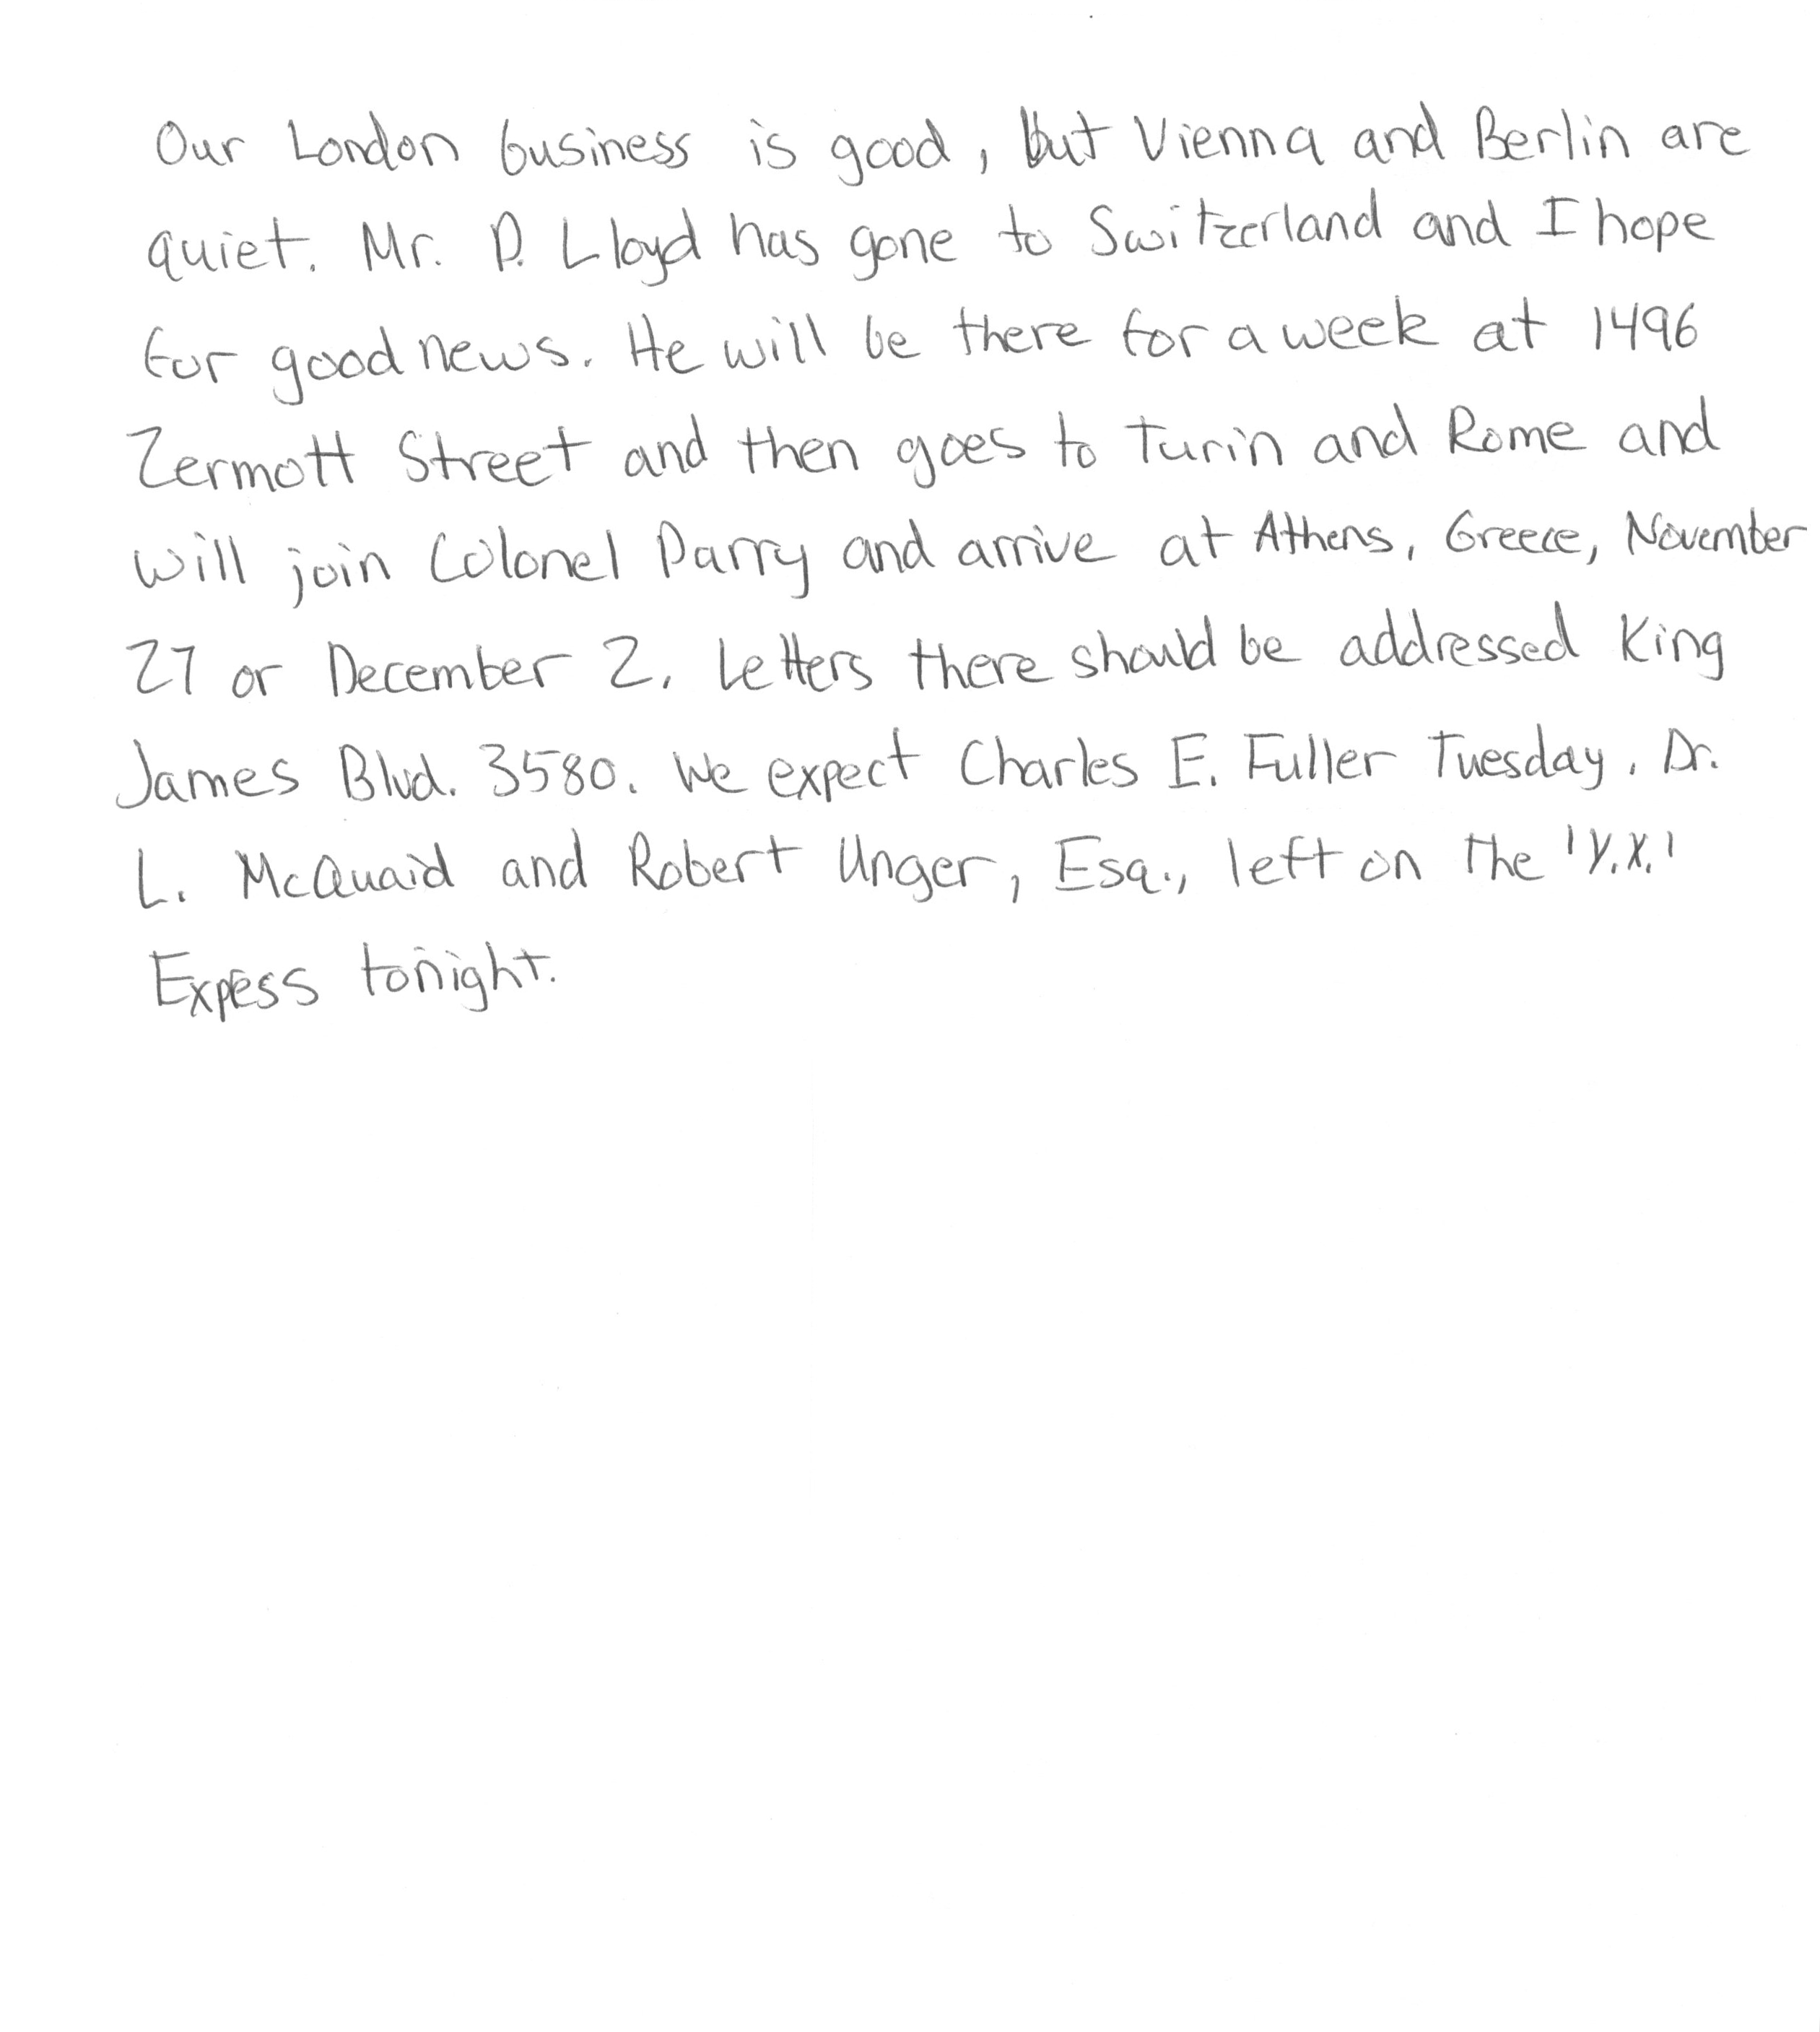 Our London business is good, but Vienna and Berlin are
quiet. Mr. D. Lloyd has gone to Switzerland and I hope
for good news. He will be there for a week at 1496
Zermott Street and then goes to Turin and Rome and
will join Colonel Parry and arrive at Athens, Greece, November
27 or December 2. Letters there should be addressed King
James Blvd. 3580. We expect Charles E. Fuller Tuesday. Dr.
L. McQuaid and Robert Unger, Esq., left on the 'Y.X.'
Expess tonight.